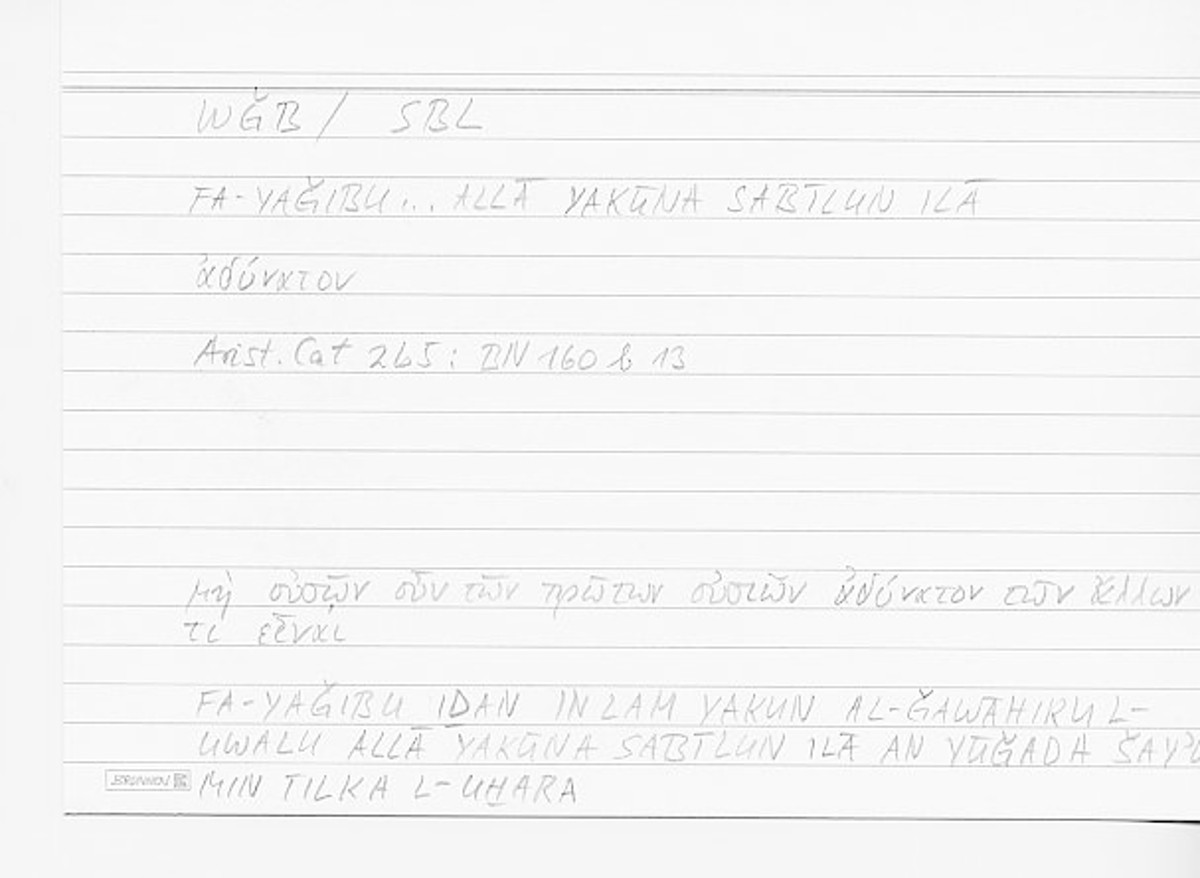 WǦB / SBL
FA-YAǦIBU... ALLĀ YAKŪNA SABĪLUN ILĀ
ἀδύνατον
Arist. Cat 2b5 : BN 160 b 13
μὴ οὐσῶν οὖν τῶν πρώτων οὐσιῶν ἀδύνατον τῶν ἄλλων
τι εἶναι
FA-YAǦIBU IḎAN IN LAM YAKUN AL-ǦAWĀHIRU L-
UWALU ALLĀ YAKŪNA SABĪLUN ILĀ AN YŪǦADA ŠAYʾU
BRUNNEN MIN TILKA L-UḪARA